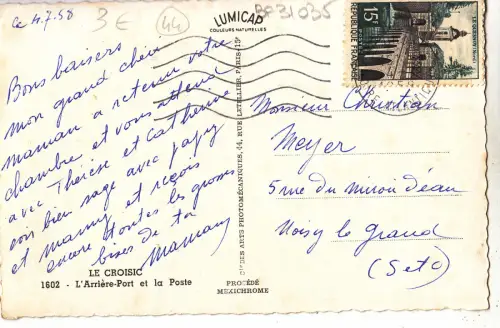 ce 4.7.58
3€
44
BP31035
LUMICAP
COULEURS NATURELLES
15F
LE QUESNOY (Nord)
REPUBLIQUE FRANÇAISE
Bons baisers
mon grand chéri
Maman a retenu votre
chambre et vous attend
avec Thérèse et Catherine
sois bien sage avec papy
et mamy et reçois
encore toutes les grosses
bises de ta
Maman
LE CROISIC
1602 - L'Arrière-Port et la Poste
Cie DES ARTS PHOTOMÉCANIQUES, 44, RUE LETELLIER, PARIS-15e
PROCÉDÉ
MEXICHROME
Monsieur Christian
Meyer
5 rue du Miroir d'eau
Noisy le grand
(S et O)